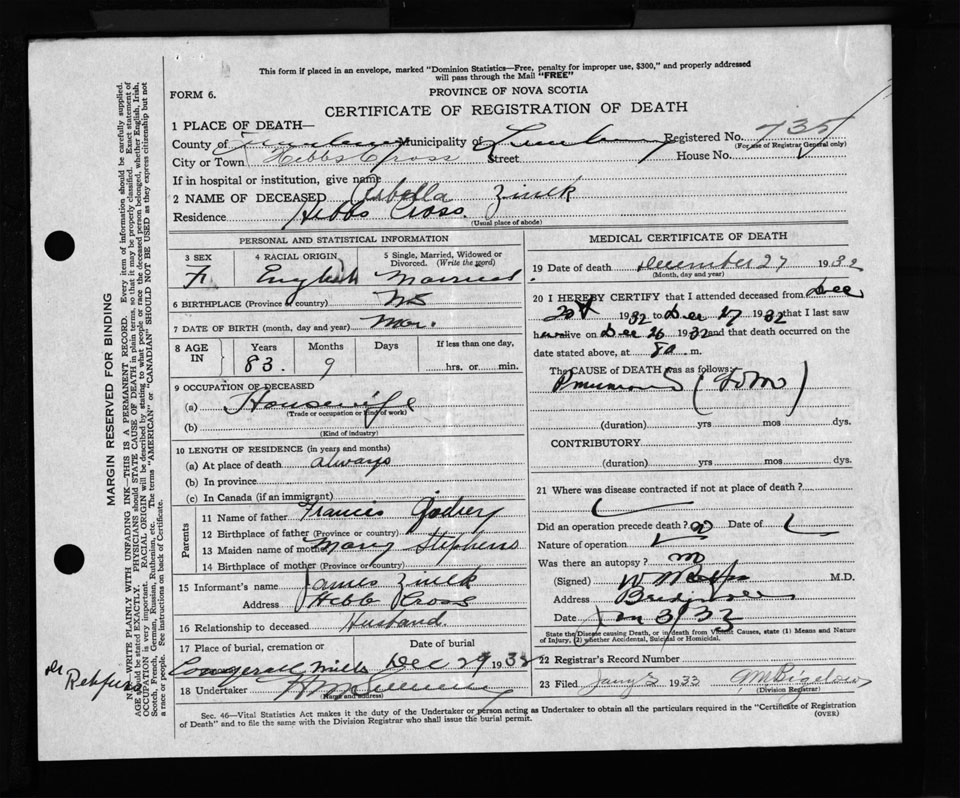 This form if placed in an envelope, marked "Dominion Statistics—Free, penalty for improper use, $300," and properly addressed
will pass through the Mail "FREE"
FORM 6.
PROVINCE OF NOVA SCOTIA
CERTIFICATE OF REGISTRATION OF DEATH
1 PLACE OF DEATH—
County of Lunenburg Municipality of Lunenburg Registered No. 735
(For use of Registrar General only)
City or Town Hebbs Cross Street House No.
If in hospital or institution, give name
2 NAME OF DECEASED Arbella Zinck
Residence Hebbs Cross.
(Usual place of abode)
PERSONAL AND STATISTICAL INFORMATION
3 SEX
F
4 RACIAL ORIGIN
English
5 Single, Married, Widowed or Divorced. (Write the word)
Married
6 BIRTHPLACE (Province or country) NS
7 DATE OF BIRTH (month, day and year) Mar.
8 AGE IN
Years Months Days If less than one day,
83. 9 hrs. or min.
9 OCCUPATION OF DECEASED
(a) Housewife
(Trade or occupation or kind of work)
(b)
(Kind of industry)
10 LENGTH OF RESIDENCE (in years and months)
(a) At place of death always
(b) In province
(c) In Canada (if an immigrant)
Parents
11 Name of father Francis
12 Birthplace of father (Province or country)
13 Maiden name of mother Mary Stephens
14 Birthplace of mother (Province or country)
15 Informant's name James Zinck
Address Hebb Cross
16 Relationship to deceased Husband.
17 Place of burial, cremation or Date of burial
Mills Dec 29 1932
18 Undertaker
(Name and address)
MEDICAL CERTIFICATE OF DEATH
19 Date of death December 27 1932
(Month, day and year)
20 I HEREBY CERTIFY that I attended deceased from Dec
1932 to Dec 27 1932 that I last saw
her alive on Dec 26 1932 and that death occurred on
date stated above, at m.
The CAUSE of DEATH was as follows:
Pneumonia
(duration) yrs mos dys.
CONTRIBUTORY
(duration) yrs mos dys.
21 Where was disease contracted if not at place of death?
Did an operation precede death? Date of
Nature of operation
Was there an autopsy?
(Signed) M.D.
Address Bridgewater
Date Jan 3/33
State the Disease causing Death, or in death from Violent Causes, state (1) Means and Nature
of Injury, (2) whether Accidental, Suicidal or Homicidal.
22 Registrar's Record Number
23 Filed 1933 Bigelow
(Division Registrar)
Sec. 46—Vital Statistics Act makes it the duty of the Undertaker or person acting as Undertaker to obtain all the particulars required in the "Certificate of Registration
of Death" and to file the same with the Division Registrar who shall issue the burial permit.
(OVER)
MARGIN RESERVED FOR BINDING
N.B.—WRITE PLAINLY WITH UNFADING INK—THIS IS A PERMANENT RECORD. Every item of information should be carefully supplied.
AGE should be stated EXACTLY. PHYSICIANS should STATE CAUSE OF DEATH in plain terms, so that it may be properly classified. Exact statement of
OCCUPATION is very important. RACIAL ORIGIN will be described by stating to what people or race the deceased person belonged, whether English, Irish,
Scotch, French, German, Russian, Ruthenian, etc. The terms "AMERICAN" or "CANADIAN" SHOULD NOT BE USED as they express citizenship but not
a race or people. See instructions on back of Certificate.